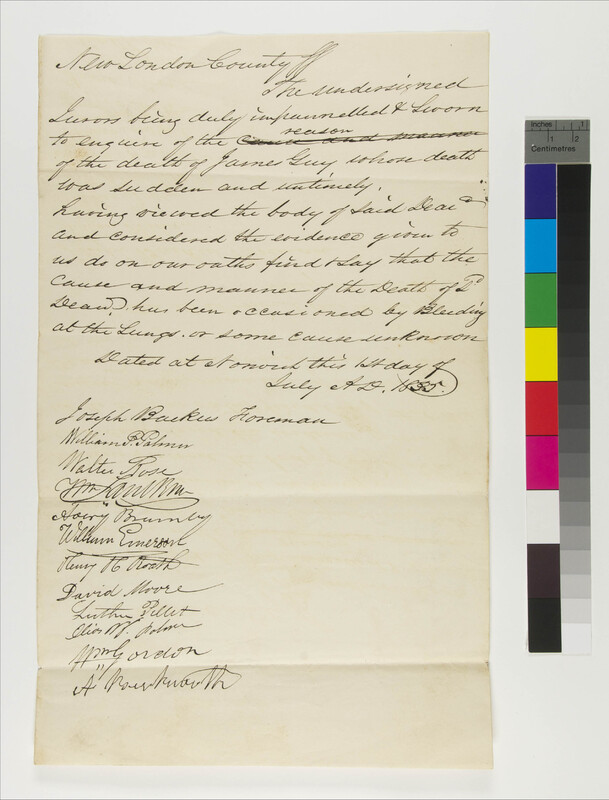 New London County ss
The undersigned
Jurors being duly impannelled & Sworn
to enquire of the cause and manner reason
of the death of James Guy whose death
was sudden and untimely.
having viewed the body of said Decd
and considered the evidence given to
us do on our oaths find & say that the
cause and manner of the Death of sd
Deacd. has been occasioned by Bleeding
at the Lungs. or some cause unknown
Dated at Norwich this 1st day of
July A.D. 1855.
Joseph Backus Foreman
William P. Palmer
Walter Rose
Wm
Avery Brumby
William Emerson
Henry H Roath
David Moore
Luther Pellet
Elias W. Palmer
Wm Gordon
A
Inches 1
1 2
Centimetres